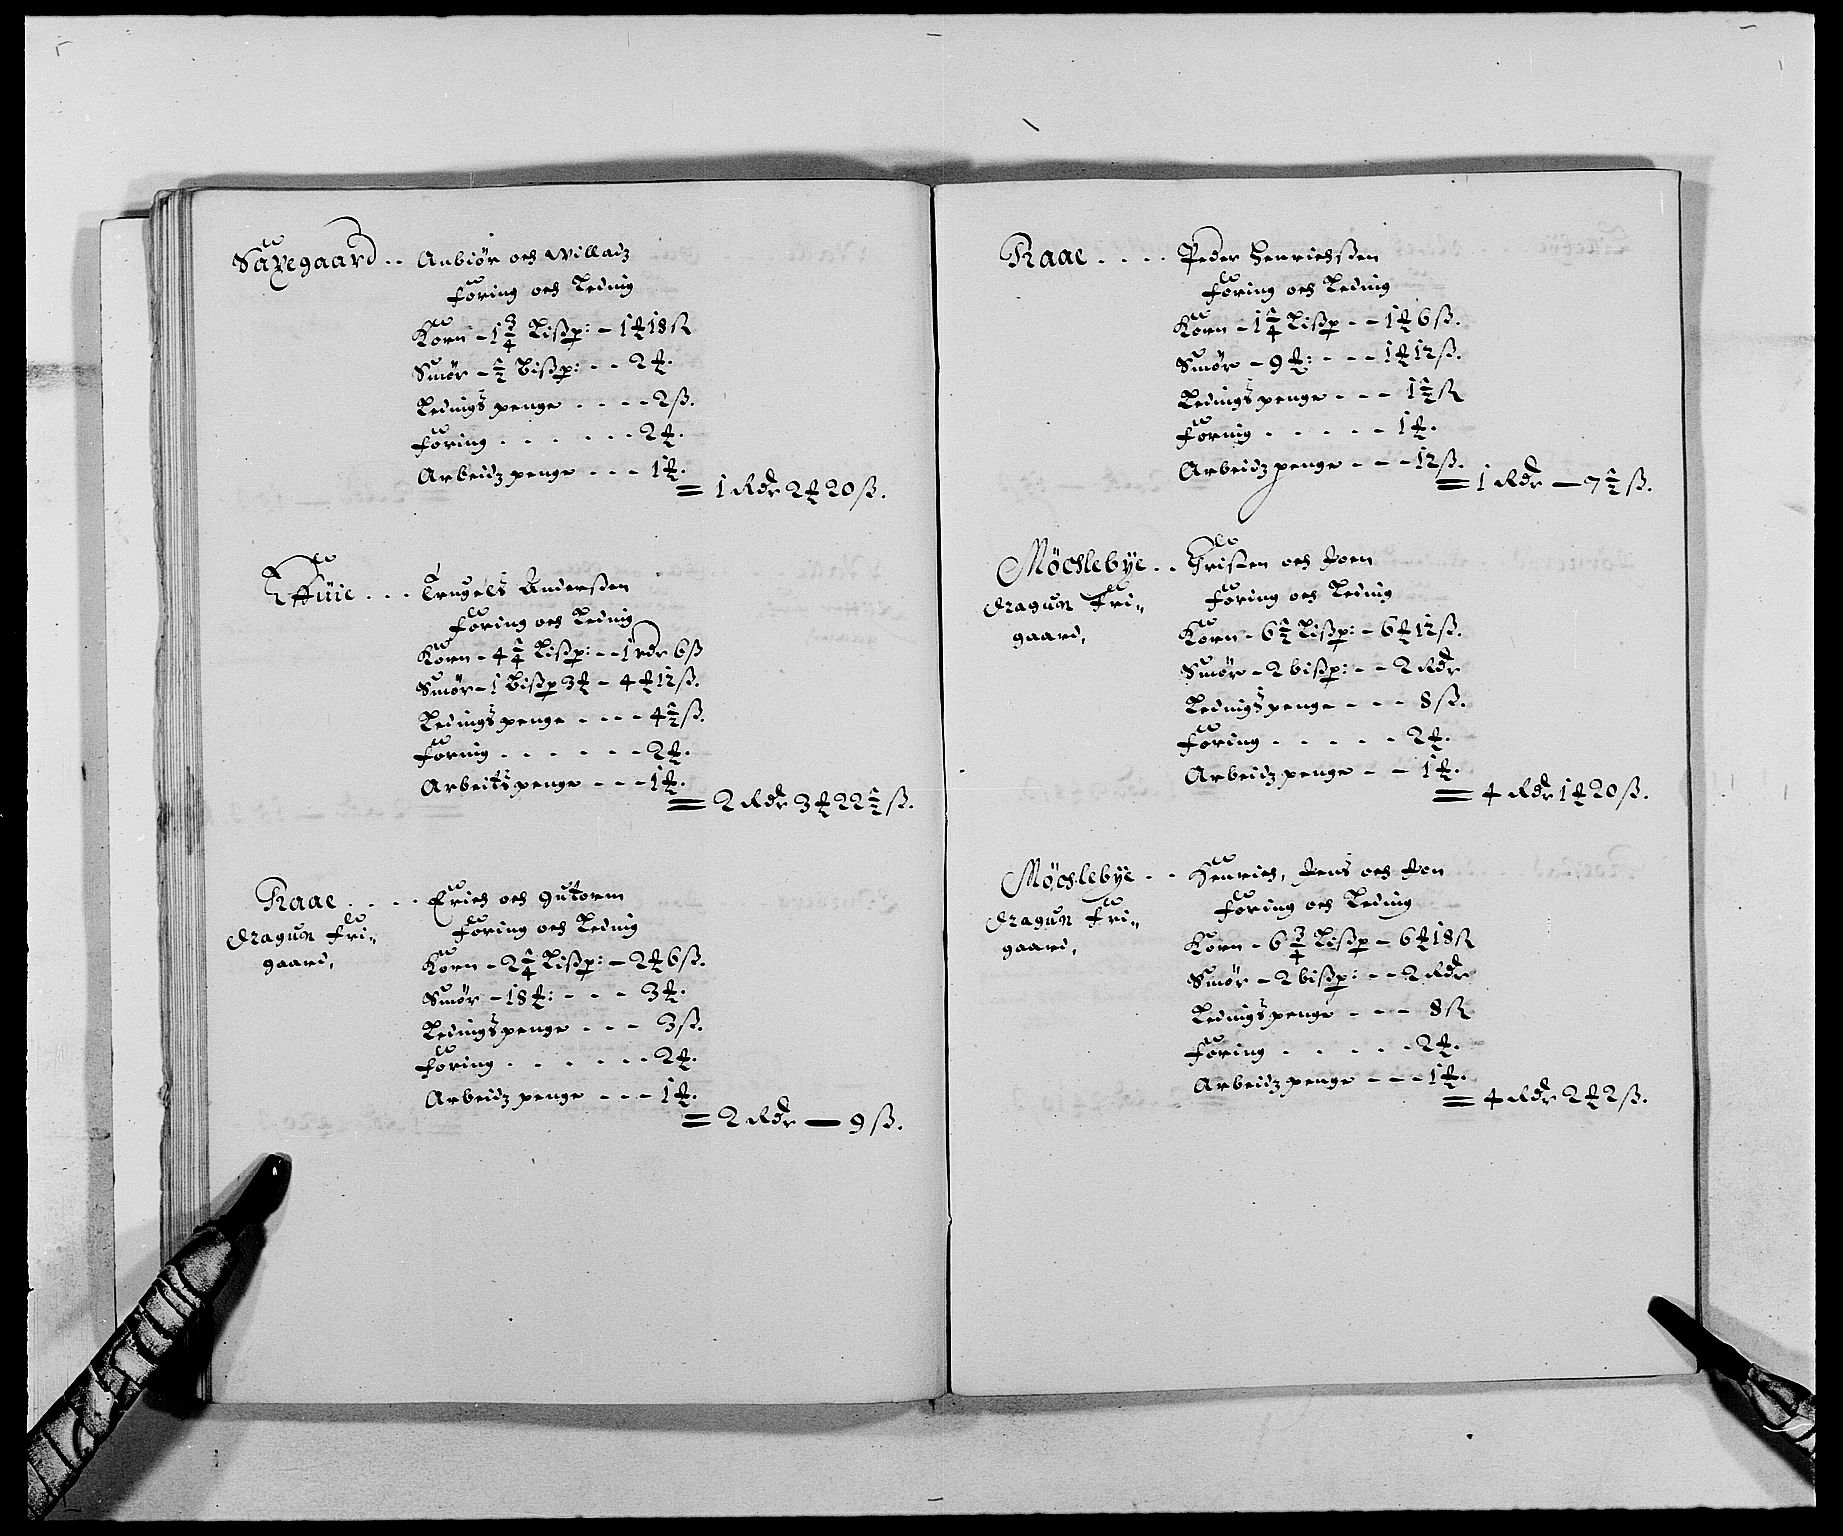 Saxegaard . . Anbiör och Willadz
Foring och Leding
Korn - 1 3/4 Lißp: - 1 ℔ 18 ß
Smör - 1/2 Bißp: - - 2 ℔.
Ledings penge - - - - 2 ß.
Foring . . . . . . 2 ℔.
Arbeidz penge - - - 1 ℔.
= 1 Rdr 2 ℔ 20 ß.
Effüie . . . Trugels Anderßen
Foring och Leding
Korn - 4 1/4 Lißp: - - 1 rdr 6 ß
Smör - 1 Bißp 3 ℔ - 4 ℔ 12 ß.
Ledings penge - - - - 4 1/2 ß.
Foring . . . . . . 2 ℔.
Arbeitspenge - - - 1 ℔.
= 2 Rdr 3 ℔ 22 1/2 ß.
Raae . . . . Erich och Gutorm
Dragun Fri= Foring och Leding
gaard,
Korn - 2 1/4 Lißp: - 2 ℔ 6 ß.
Smör - 18 ℔: - - - 3 ℔.
Ledings penge - - - 3 ß.
Foring . . . . . . 2 ℔.
Arbeidz penge - - - 1 ℔.
= 2 Rdr — 9 ß.
Raae . . . . Peder Henrichßen
Foring och Leding
Korn - 1 1/4 Lißp - - 1 ℔ 6 ß.
Smör - 9 ℔: - - - 1 ℔ 12 ß.
Ledings penge - - - 1 1/2 ß
Foring . . . . . 1 ℔.
Arbeidz penge - - - 12 ß.
= 1 Rdr — 7 1/2 ß.
Möchlebÿe . . Christen och Joen
Dragun Fri= Foring och Leding
gaard,
Korn - 6 1/2 Lißp: - 6 ℔ 12 ß.
Smör - 2 bißp: - - 2 Rdr
Ledings penge - - - 8 ß.
Foring . . . . . 2 ℔.
Arbeidz penge - - 1 ℔.
= 4 Rdr 1 ℔ 20 ß.
Möchlebÿe - - Henrich, Jens och Jon
Dragun Fri= Foring och Leding
gaard,
Korn - 6 3/4 Lißp - 6 ℔ 18 ß
Smör - 2 bißp: - - 2 Rdr
Ledings penge - - - 8 ß
Foring . . . . . 2 ℔.
Arbeidz penge - - - 1 ℔.
= 4 Rdr 2 ℔ 2 ß.